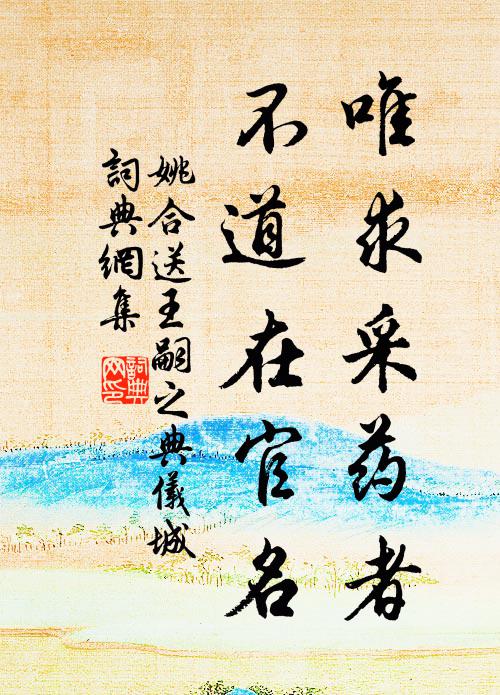 唯求采药者
不道在官名
姚合送王嗣之典儀城
詞典網集
詞典网印